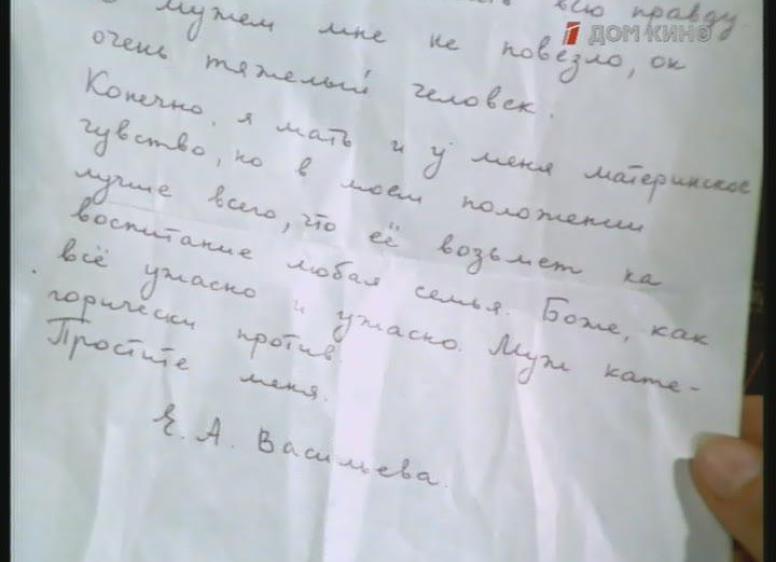 всю правду
ДОМ КИНО
мужем мне не повезло, он
очень тяжелый человек.
Конечно, я мать и у меня материнское
чувство, но в моем положении
лучше всего, что её возьмет на
воспитание любая семья. Боже, как
всё ужасно и ужасно. Муж кате-
горически против.
Простите меня.
Е. А. Васильева.